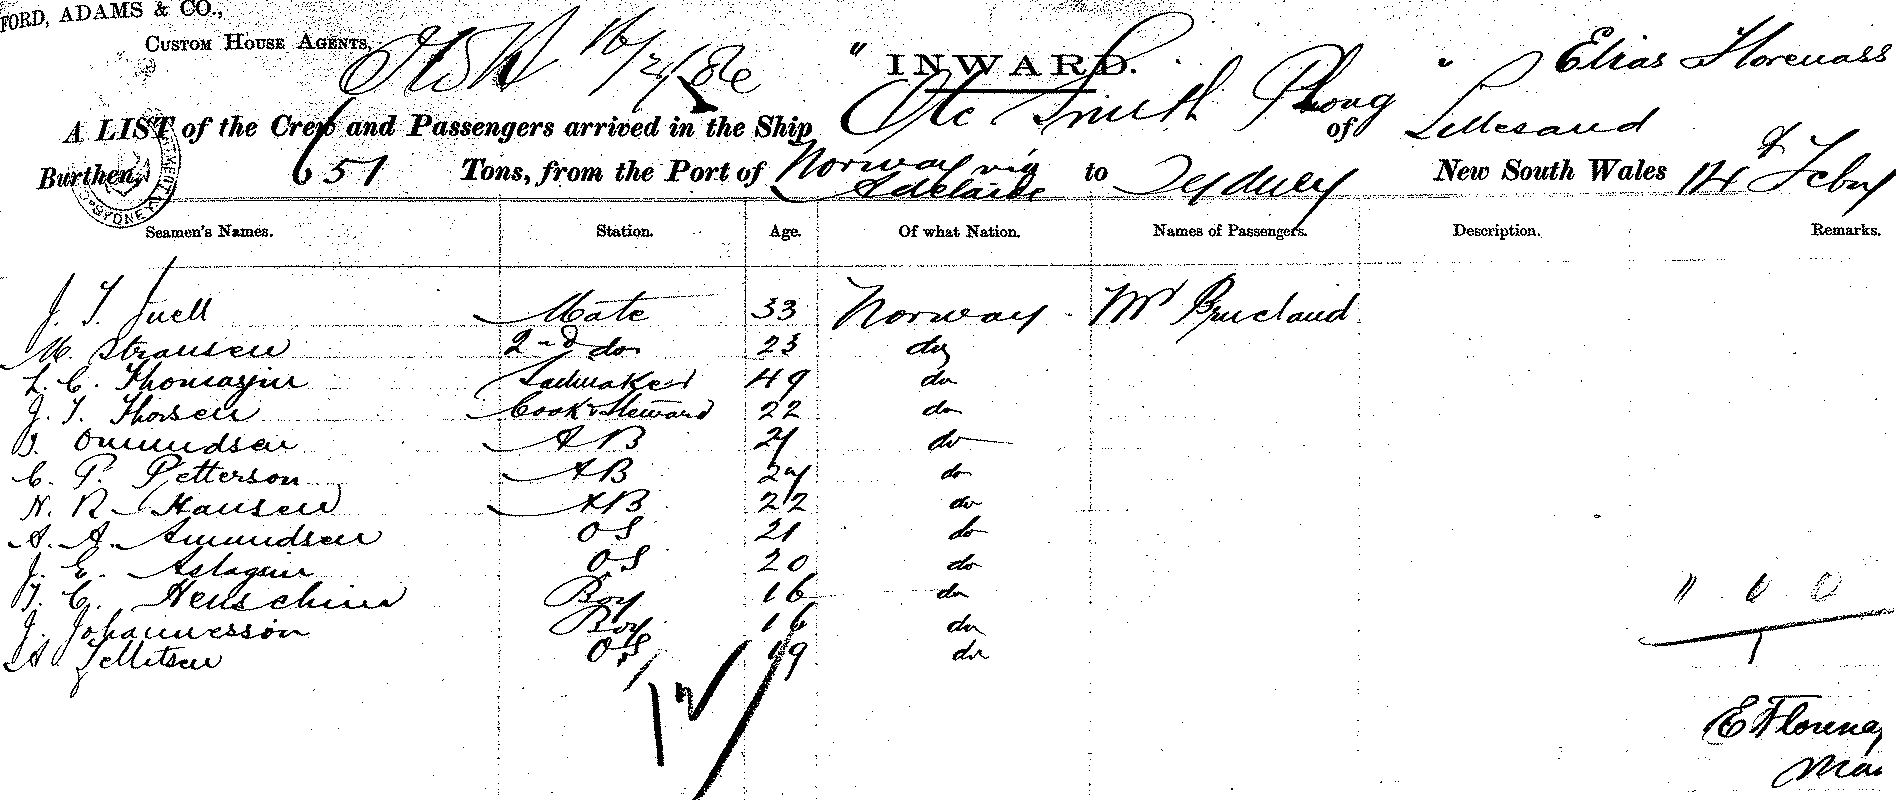 FORD, ADAMS & CO.,
CUSTOM HOUSE AGENTS,
16/2/86
" INWARD. " Elias Florenass
A LIST of the Crew and Passengers arrived in the Ship Ole Smith Ploug of Lillesand
Burthen, 651 Tons, from the Port of Norway via Adelaide to Sydney New South Wales 14th Feby
Seamen's Names. Station. Age. Of what Nation. Names of Passengers. Description. Remarks.
J. T. Juell Mate 33 Norway Mr
M. Stransen 2nd do 23 do
L. C. Sailmaker 49 do
J. T. Thorsen Cook & Steward 22 do
Omundsen AB 21 do
C. P. Petterson AB do
N. R. Hansen AB 22 do
A. A. Amundsen OS 21 do
J. E. OS 20 do
T. C. Boy 16 do
J. Johannesson Boy 16 do
A. OS 19 do
12
" 0 0
1
E Florena
Mas